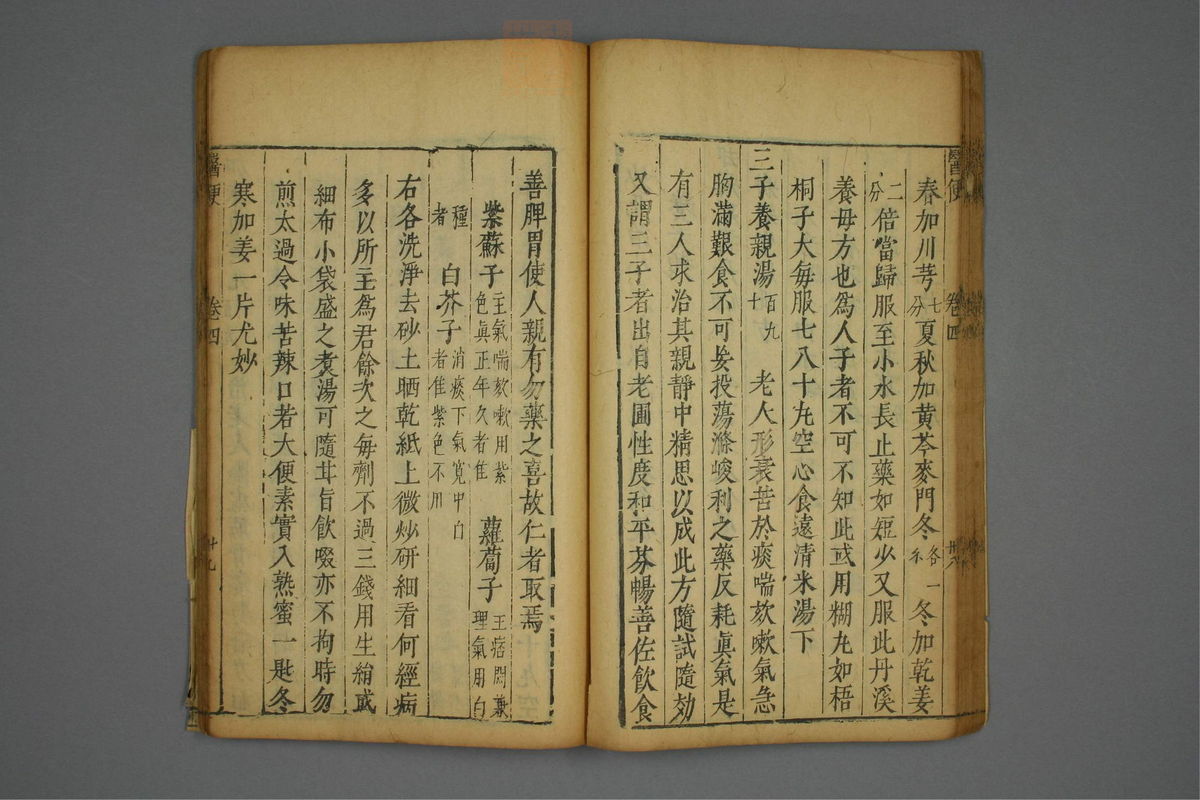 醫便
卷四
卅八
春加川芎七分夏秋加黄芩麥門冬各一
分二倍當歸服至小水長止藥如短少又服此丹溪
養母方也爲人子者不可不知此或用糊丸如梧
桐子大每服七八十丸空心食遠清米湯下
三子養親湯百九十 老人形衰苦於痰喘欬嗽氣急
胸滿艱食不可妄投蕩滌峻利之藥反耗眞氣是
有三人求治其親靜中精思以成此方隨試隨効
又謂三子者出自老圃性度和平芬暢善佐飲食
善脾胃使人親有勿藥之喜故仁者取焉
紫蘇子主氣喘欬嗽用紫色眞正年久者隹 蘿蔔子主痞悶兼理氣用白
種者 白芥子消痰下氣寛中白者隹紫色不用
右各洗淨去砂土晒乾紙上微炒研細看何經病
多以所主爲君餘次之每劑不過三錢用生絹或
細布小袋盛之煑湯可隨甘旨飲啜亦不拘時勿
煎太過令味苦辣口若大便素實入熟蜜一匙冬
寒加姜一片尤妙
醫便
卷四
卅九